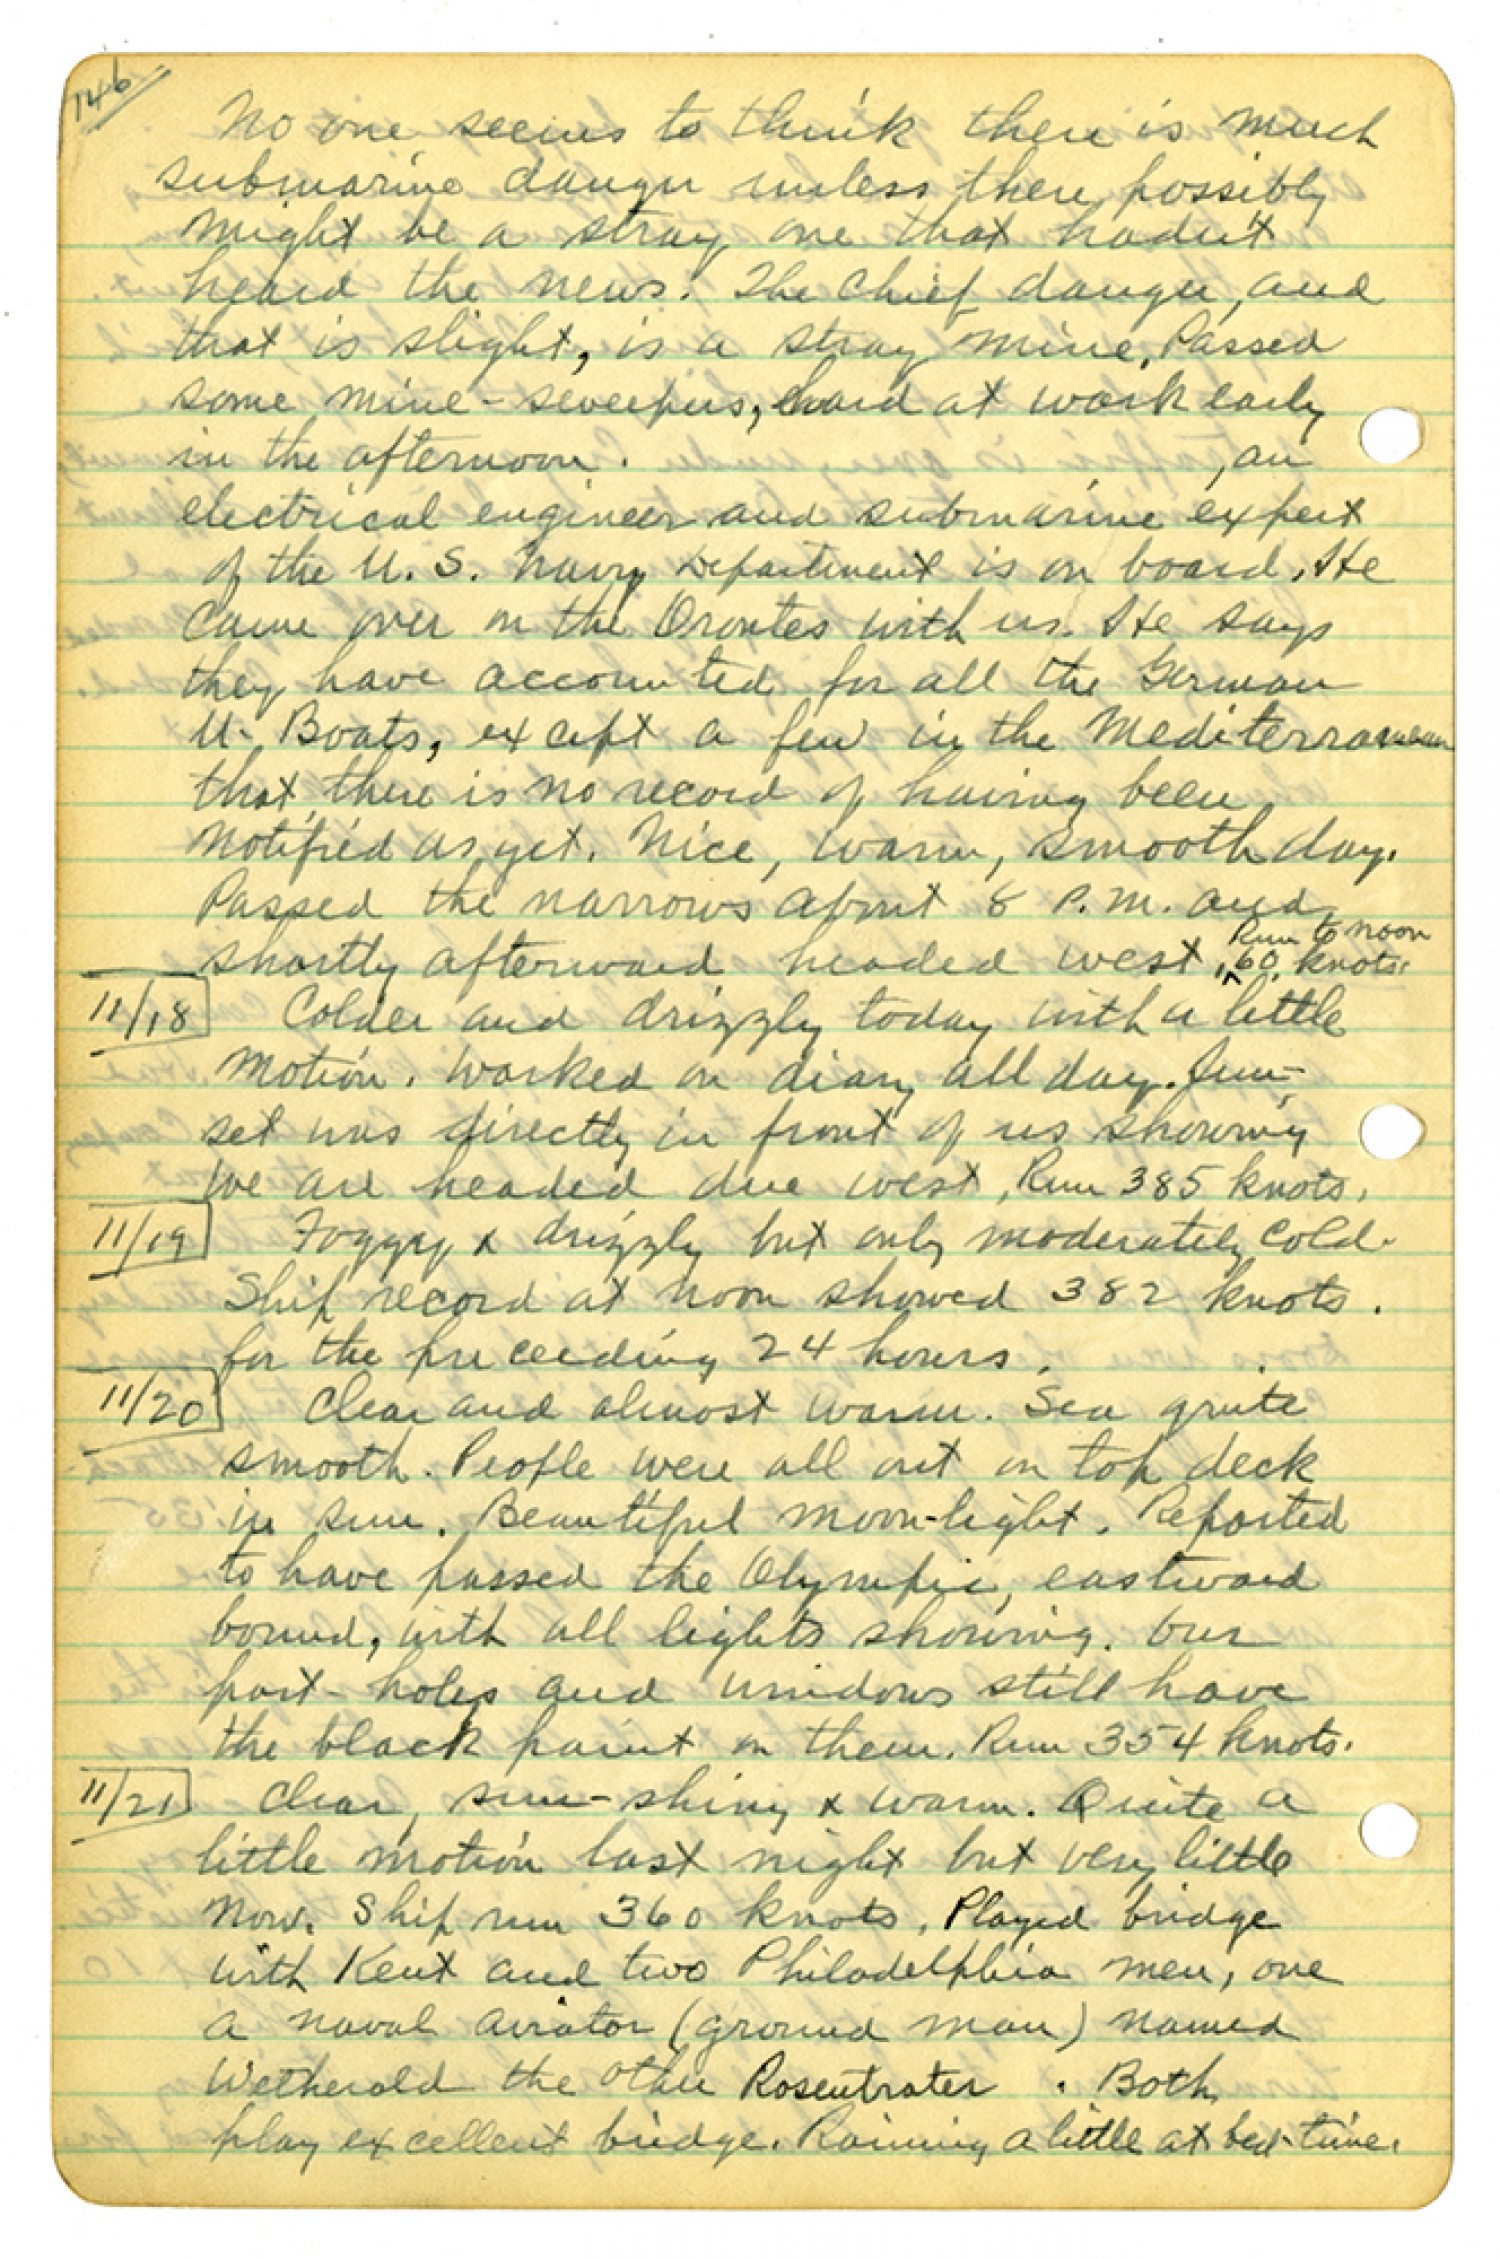 146
No one seems to think there is much
submarine danger unless there possibly
might be a stray one that hadn't
heard the news. The chief danger, and
that is slight, is a stray mine. Passed
some mine-sweepers, hard at work early
in the afternoon.                    , an
electrical engineer and submarine expert
of the U. S. Navy Department is on board. He
came over on the Orontes with us. He says
they have accounted for all the German
U-Boats, except a few in the Mediterranean
that there is no record of having been
notified as yet. Nice, warm, smooth day.
Passed the narrows about 8 P.M. and
Run to noon
shortly afterward headed west. 60 knots.
11/18 Colder and drizzly today with a little
motion. Worked on diary all day. Sun-
set was directly in front of us showing
we are headed due west. Run 385 knots.
11/19 Foggy & drizzly but only moderately cold.
Ship record at noon showed 382 knots.
for the preceeding 24 hours.
11/20 Clear and almost warm. Sea quite
smooth. People were all out on top deck
in sun. Beautiful moon-light. Reported
to have passed the Olympic, eastward
bound, with all lights showing. Our
port-holes and windows still have
the black paint on them. Run 354 knots.
11/21 Clear, sun-shiny & warm. Quite a
little motion last night but very little
now. Ship run 360 knots. Played bridge
with Kent and two Philadelphia men, one
a naval aviator (ground man) named
Wetherald the other Rosentrater. Both
play excellent bridge. Raining a little at bed-time.